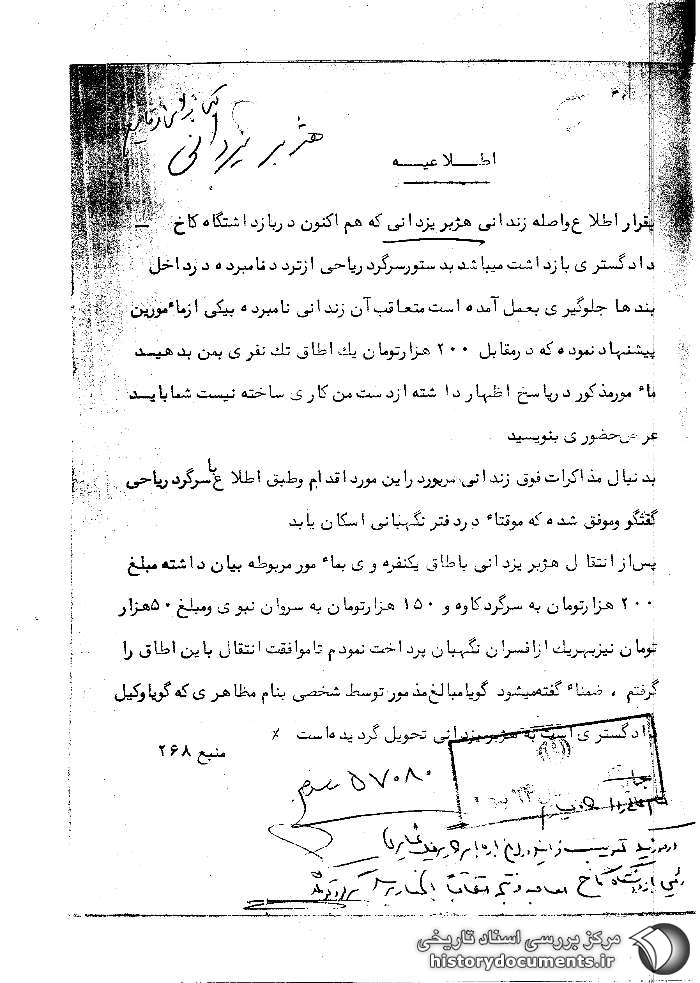 هژبر یزدانی
اطلاعیه
بقرار اطلاع واصله زندانی هژبر یزدانی که هم اکنون در بازداشتگاه کاخ
دادگستری بازداشت میباشد بدستور سرگرد ریاحی از تردد نامبرده در داخل
بندها جلوگیری بعمل آمده است متعاقب آن زندانی نامبرده بیکی از ماٴمورین
پیشنهاد نموده که در مقابل ۲۰۰ هزار تومان یك اطاق تك نفری بمن بدهید
ماٴمور مذکور در پاسخ اظهار داشته از دست من کاری ساخته نیست شما باید
عرض حضوری بنویسید
بدنبال مذاکرات فوق زندانی مزبور در این مورد اقدام وطبق اطلاع با سرگرد ریاحی
گفتگو وموفق شده که موقتاٴ در دفتر نگهبانی اسکان یابد
پس از انتقال هژبر یزدانی باطاق یکنفره وی بماٴمور مربوطه بیان داشته مبلغ
۲۰۰ هزار تومان به سرگرد کاوه و ۱۵۰ هزار تومان به سروان نبوی ومبلغ ۵۰ هزار
تومان نیز بهریك از افسران نگهبان پرداخت نمودم تا موافقت انتقال باین اطاق را
گرفتم ، ضمناٴ گفته میشود گویا مبالغ مذمور توسط شخصی بنام مظاهری که گویا وکیل
دادگستری است به هژبر یزدانی تحویل گردیده است ٪
منبع ۲۶۸
۵۷۰۸۰
مرکز بررسی اسناد تاریخی
historydocuments.ir